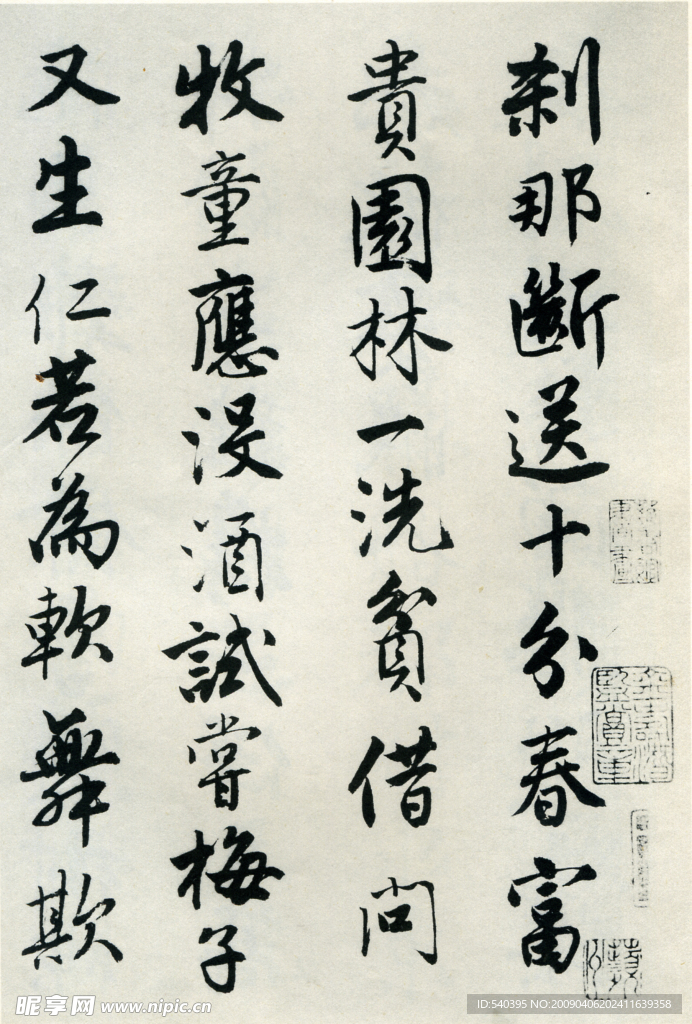 刹那斷送十分春富
貴園林一洗貧借問
牧童應没酒試嘗梅子
又生仁若為軟舞欺
昵享网 www.nipic.cn
ID:540395 NO:20090406202411639358